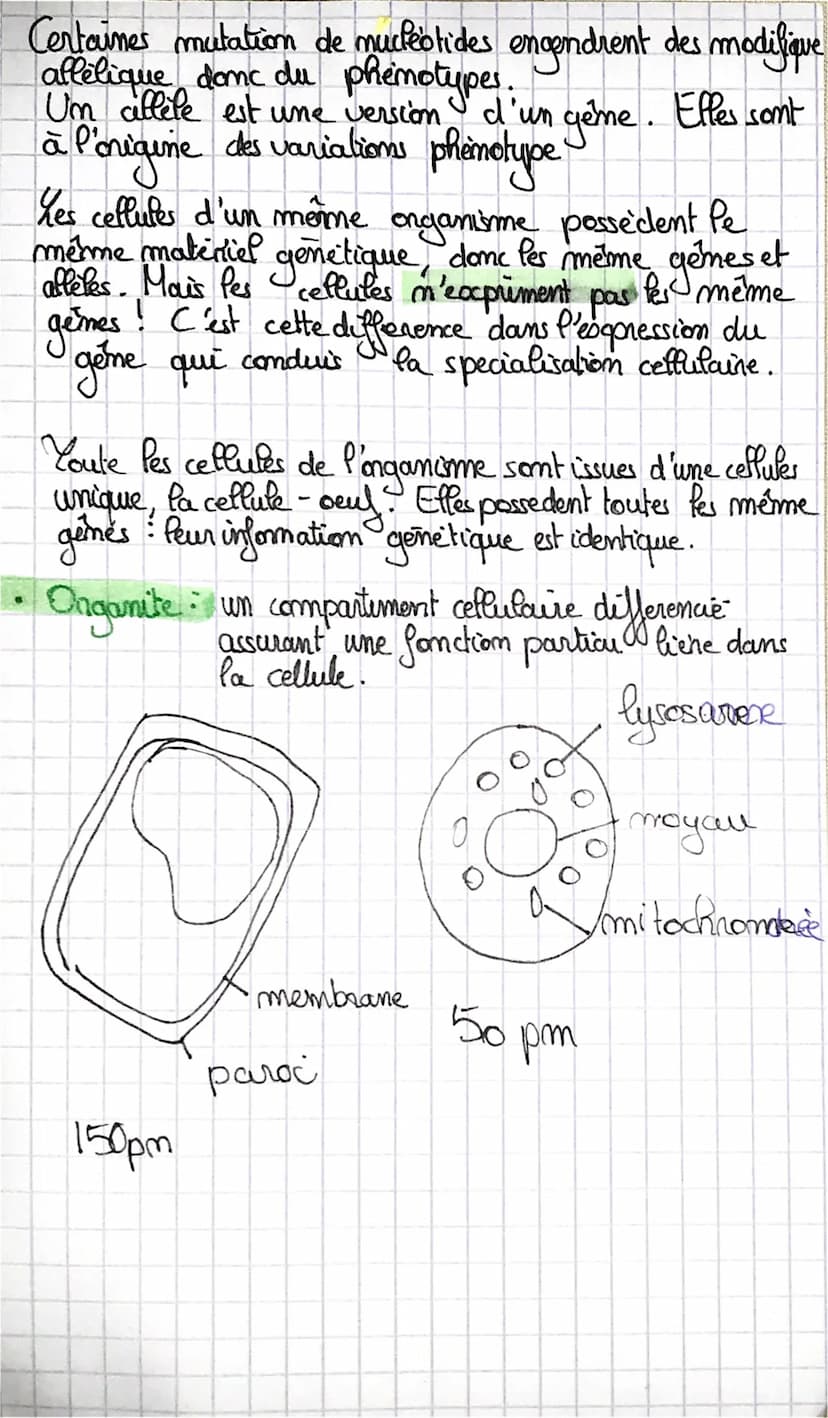 Certaines mutation de nucléotides engendrent des modifique
allèlique donc du phénotypes.
Un allèle est une version d'un gène. Elles sont
à l'origine des variations phénotype
Les cellules d'un même organisme possèdent le
même matériel génétique, donc les même gènes et
allèles. Mais les cellules n'expriment pas les même
gènes ! C'est cette difference dans l'expression du
gène qui conduis la specialisation cellulaire.
Toute les cellules de l'organisme sont issues d'une cellules
unique, la cellule-oeuf. Elles possedent toutes les même
gènes : leur information génétique est identique.
• Organite : un compartiment cellulaire différencié
assurant une fonction particulière dans
la cellule.
lysosome
noyau
mitochondrie
membrane
50 pm
paroi
150pm